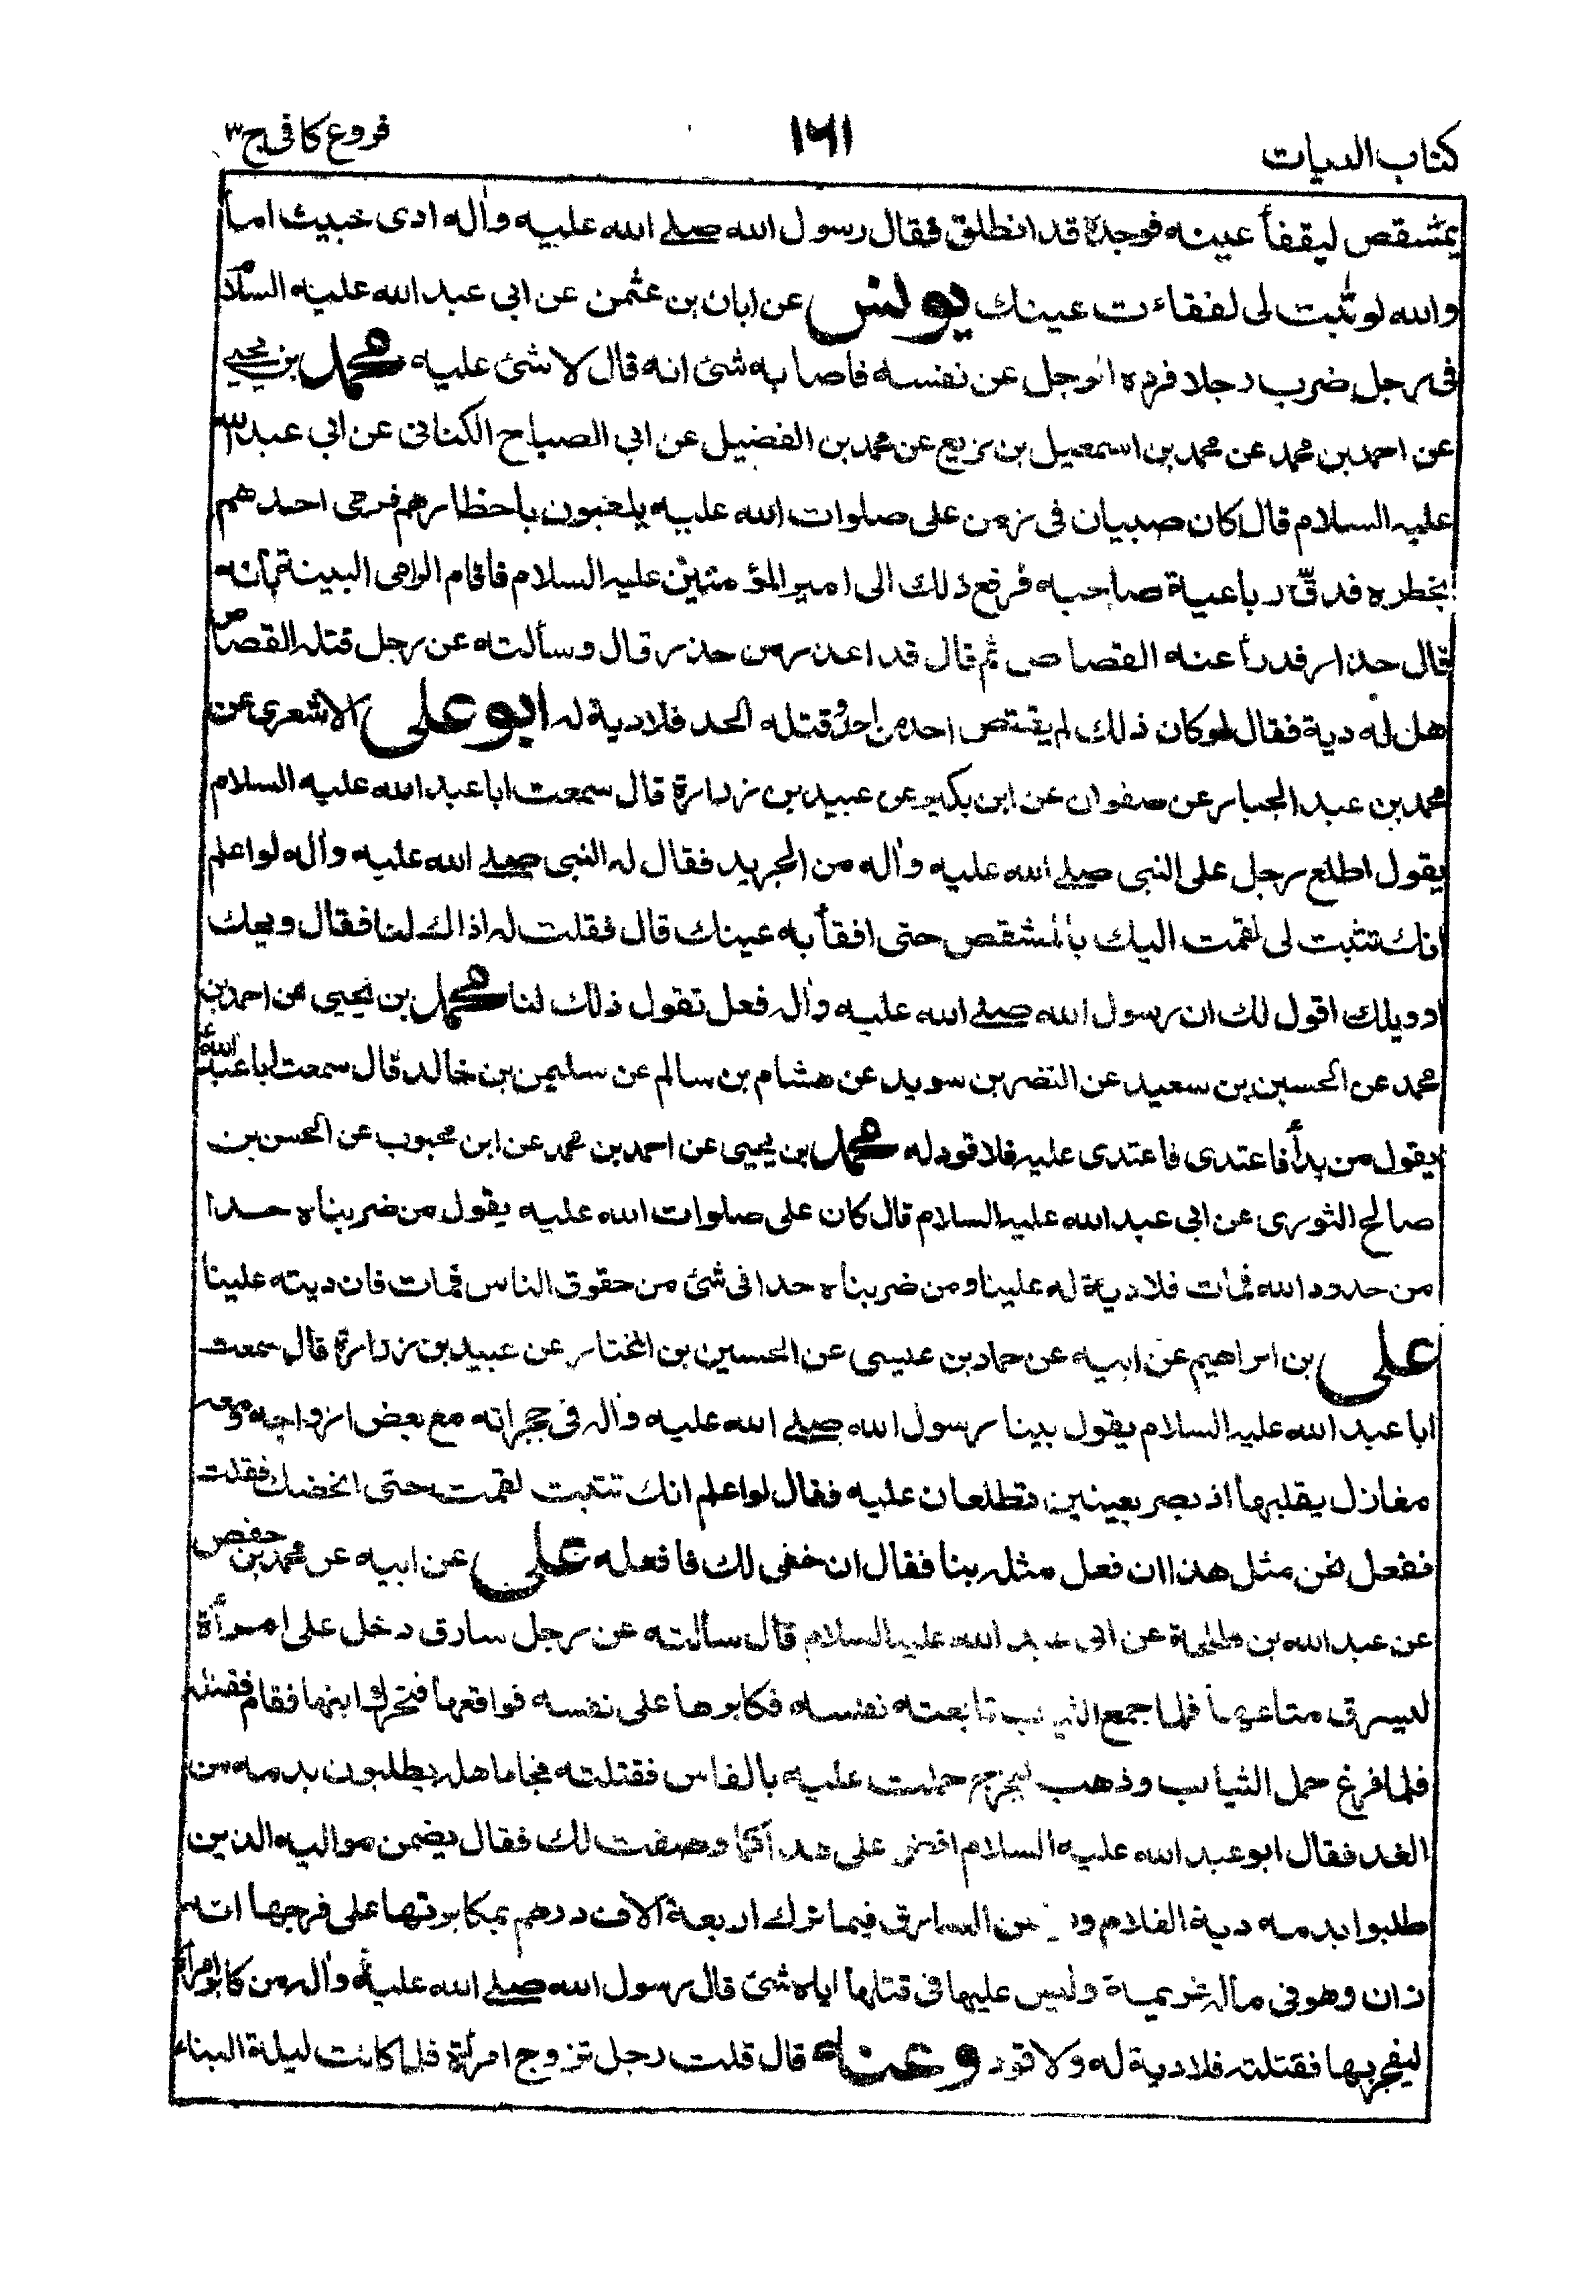 كتاب الديات ١٦١ فروع كافي ج٣
بمشقص ليفقأ عينه فوجده قد انطلق فقال رسول الله صلے الله عليه وآله ادى خبيث اما
والله لو ثبت لى لفقاءت عينك يونس عن ابان بن عثمن عن ابى عبد الله عليه السلام
فى رجل ضرب رجلا فرده الرجل عن نفسه فاصابه شئ انه قال لا شئ عليه محمد بن يحيے
عن احمد بن محمد عن محمد بن اسمعيل بن بزيع عن محمد بن الفضيل عن ابى الصباح الكنانى عن ابى عبد الله
عليه السلام قال كان صبيان فى زمن على صلوات الله عليه يلعبون باخطارهم فرمى احدهم
بخطره فدقّ رباعية صاحبه فرفع ذلك الى امير المؤمنين عليه السلام فاقام الرامى البينة بأنه
قال حذار فدرأ عنه القصاص ثم قال قد اعذر من حذر قال وسألته عن رجل قتله القصاص
هل له دية فقال لو كان ذلك لم يقتص احد من احد وقتله الحد فلا دية له ابو على الاشعرى عن
محمد بن عبد الجبار عن صفوان عن ابن بكير عن عبيد بن زرارة قال سمعت ابا عبد الله عليه السلام
يقول اطلع رجل على النبى صلے الله عليه وآله من الجريد فقال له النبى صلے الله عليه وآله لو اعلم
انك تثبت لى لقمت اليك بالمشقص حتى افقأ به عينك قال فقلت له اذاك لنا فقال ويحك
او ويلك اقول لك ان رسول الله صلے الله عليه وآله فعل تقول ذلك لنا محمد بن يحيى عن احمد بن
محمد عن الحسين بن سعيد عن النضر بن سويد عن هشام بن سالم عن سليمن بن خالد قال سمعت ابا عبد الله ع
يقول من بدأ فاعتدى فاعتدى عليه فلا قود له محمد بن يحيى عن احمد بن محمد عن ابن محبوب عن الحسن بن
صالح الثورى عن ابى عبد الله عليه السلام قال كان على صلوات الله عليه يقول من ضربناه حدا
من حدود الله فمات فلا دية له علينا ومن ضربناه حدا فى شئ من حقوق الناس فمات فان ديته علينا
على بن ابراهيم عن ابيه عن حماد بن عيسى عن الحسين بن المختار عن عبيد بن زرارة قال سمعت
ابا عبد الله عليه السلام يقول بينا رسول الله صلے الله عليه وآله فى حجراته مع بعض ازواجه ومعه
مغازل يقلبها اذ بصر بعينين تطلعان عليه فقال لو اعلم انك تثبت لقمت حتى انخضك فقلت
فنفعل نحن مثل هذا ان فعل مثله بنا فقال ان خفى لك فافعله على عن ابيه عن محمد بن حفص
عن عبد الله بن طلحة عن ابى عبد الله عليه السلام قال سألته عن رجل سارق دخل على امرأة
ليسرق متاعها فلما جمع الثياب تابعته نفسه فكابرها على نفسه فواقعها فتحرك ابنها فقام فقتله
فلما فرغ حمل الثياب وذهب ليخرج حملت عليه بالفاس فقتلته فجاء اهله يطلبون بدمه من
الغد فقال ابو عبد الله عليه السلام اقض على هذا كما وصفت لك فقال يضمن مواليه الذين
طلبوا بدمه دية الغلام و من السارق فيما ترك اربعة آلاف درهم بمكابرتها على فرجها انه
زان وهو فى ماله غريمه وليس عليها فى قتلها اياه شئ قال رسول الله صلے الله عليه وآله من كابر امرأة
ليفجر بها فقتلته فلا دية له ولا قود وعنه قال قلت رجل تزوج امرأة فلما كانت ليلة البناء